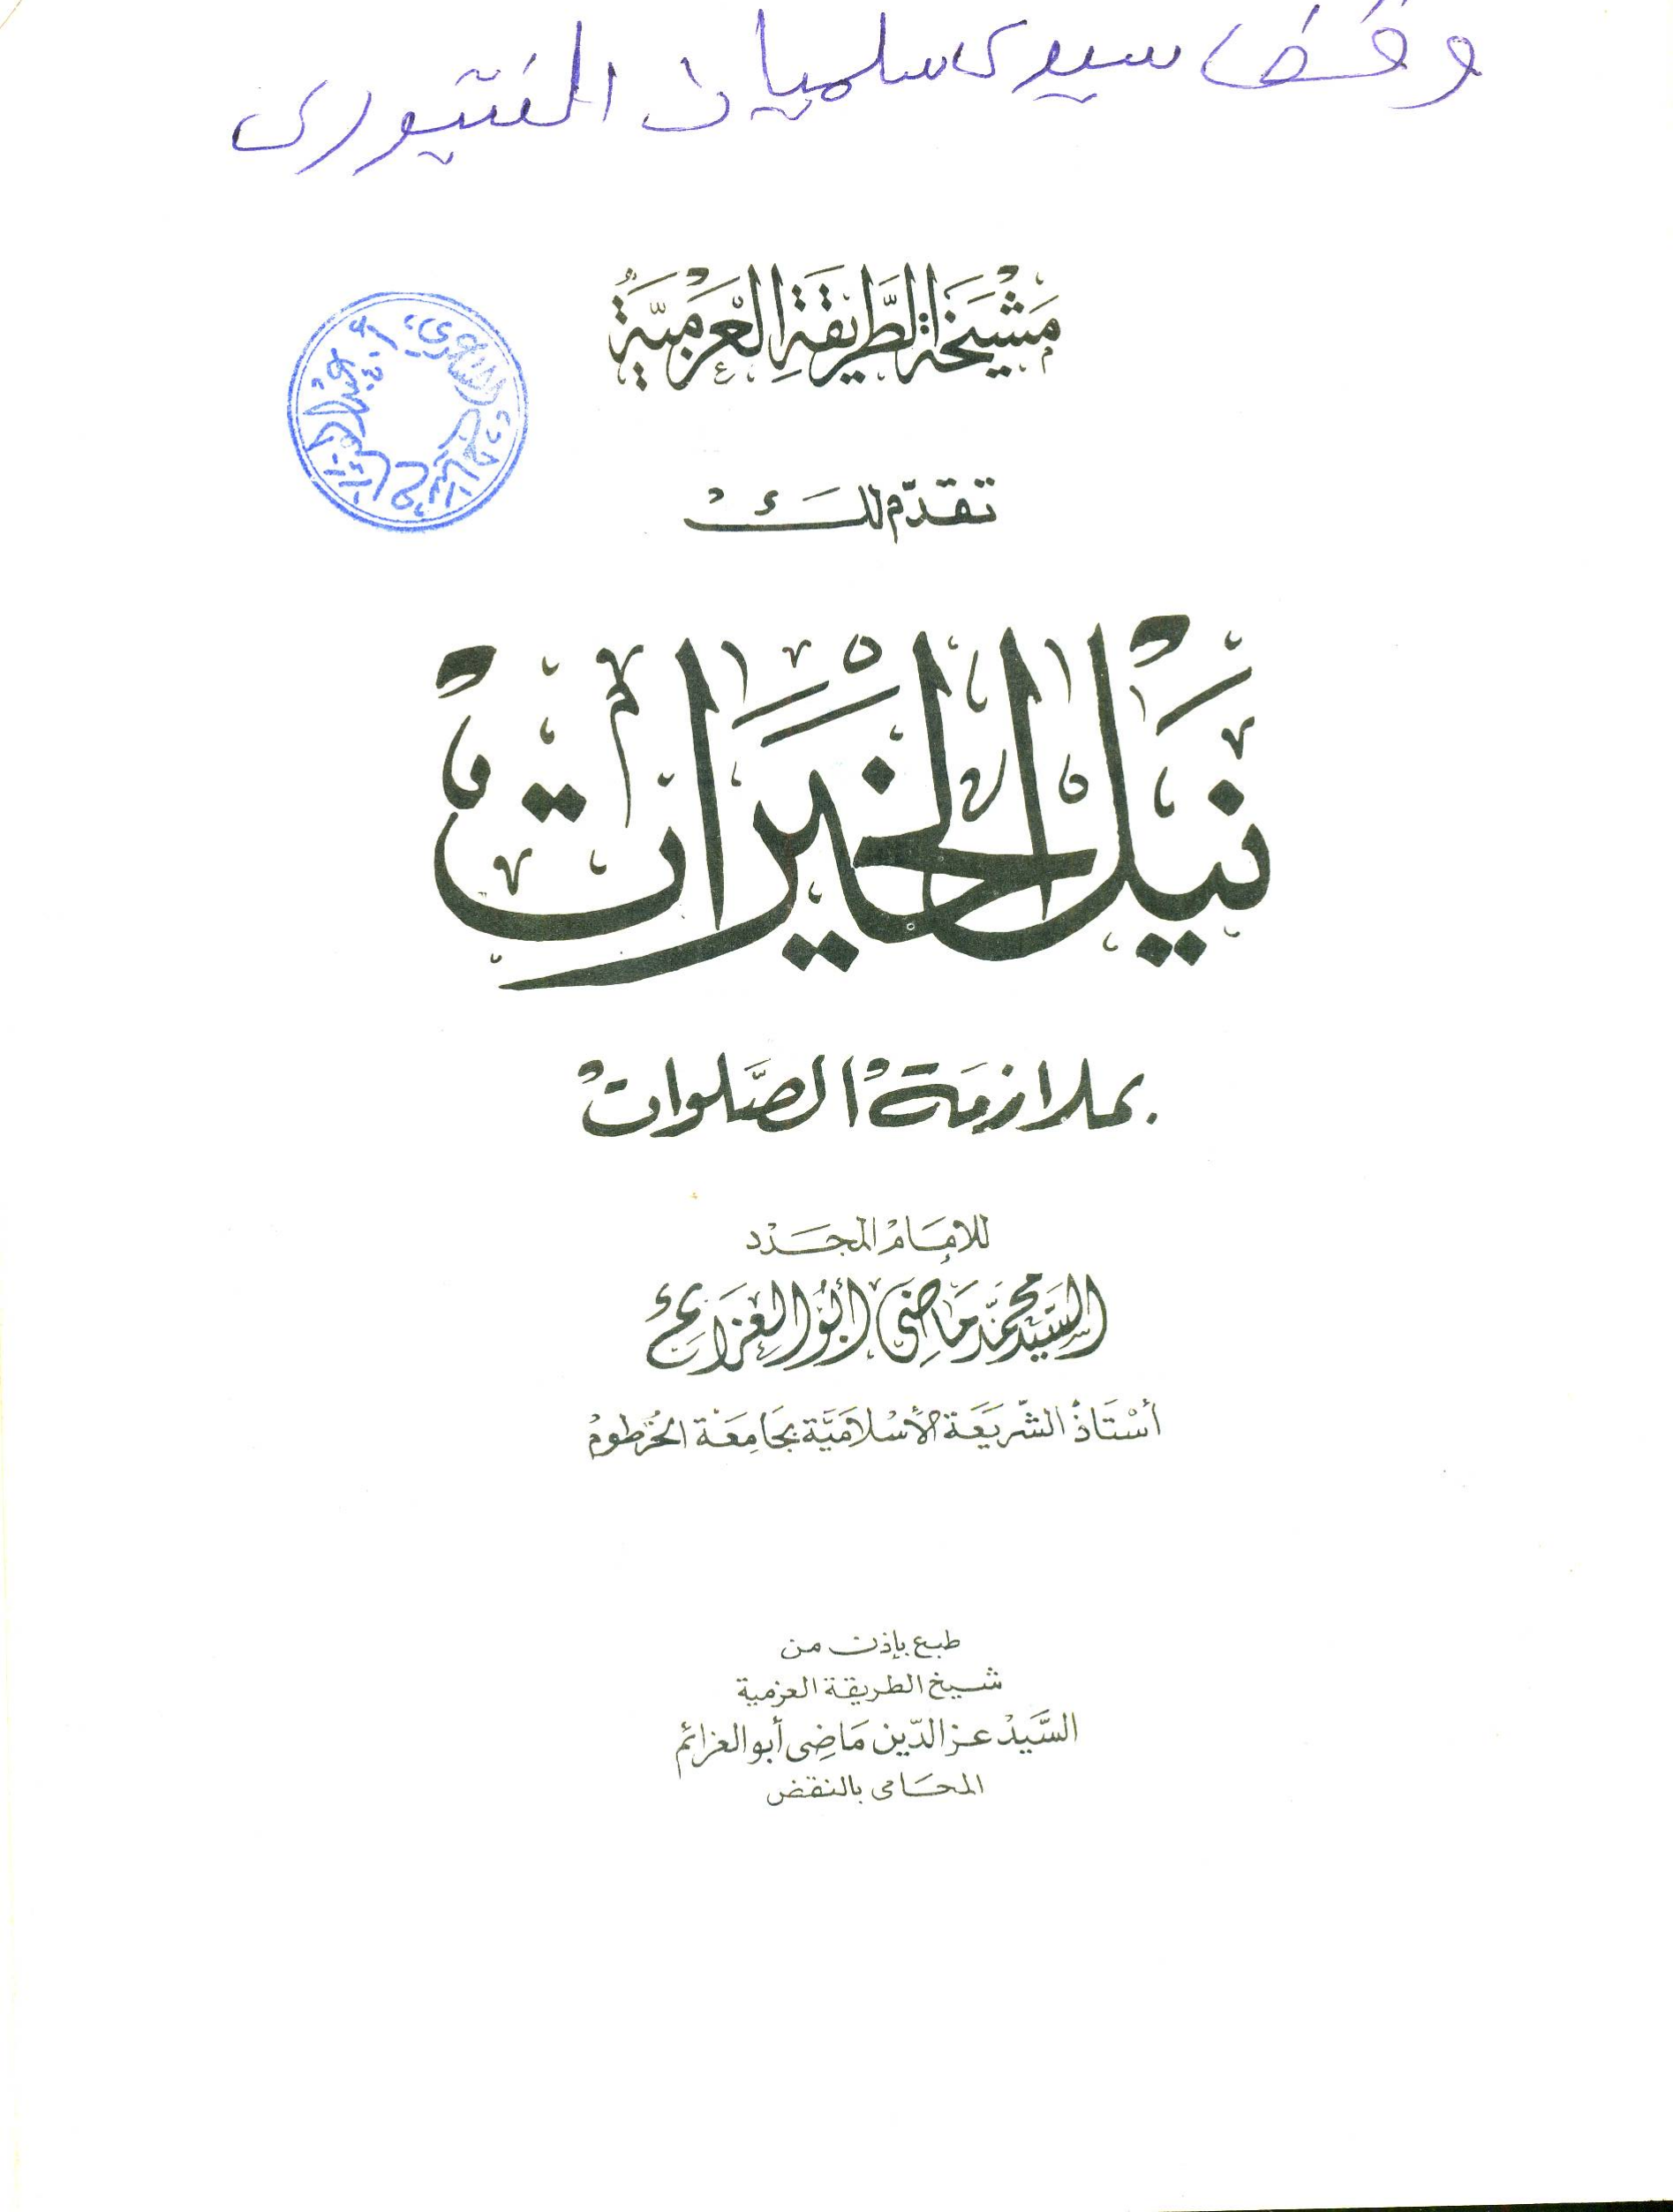 سيدى سلميان الفيتورى
مَشْيَخَةُ الطَّرِيقَةِ الْعَزْمِيَّةُ
تقدّم لك
نَيْلُ الخَيْرَاتْ
بملازمَة الصَّلواتْ
للإمَامْ المجَدْد
السَّيِّد مُحَمَّد مَاضِى أَبُو الْعَزَائِم
أسْتَاذْ الشّريَعَة الأسْلاميَّة بجَامِعَة الخُرْطومْ
طبع بإذن من
شيخ الطريقة العزمية
السَّيَدْ عز الدّين مَاضِى أبو العزائم
المحَامى بالنقض